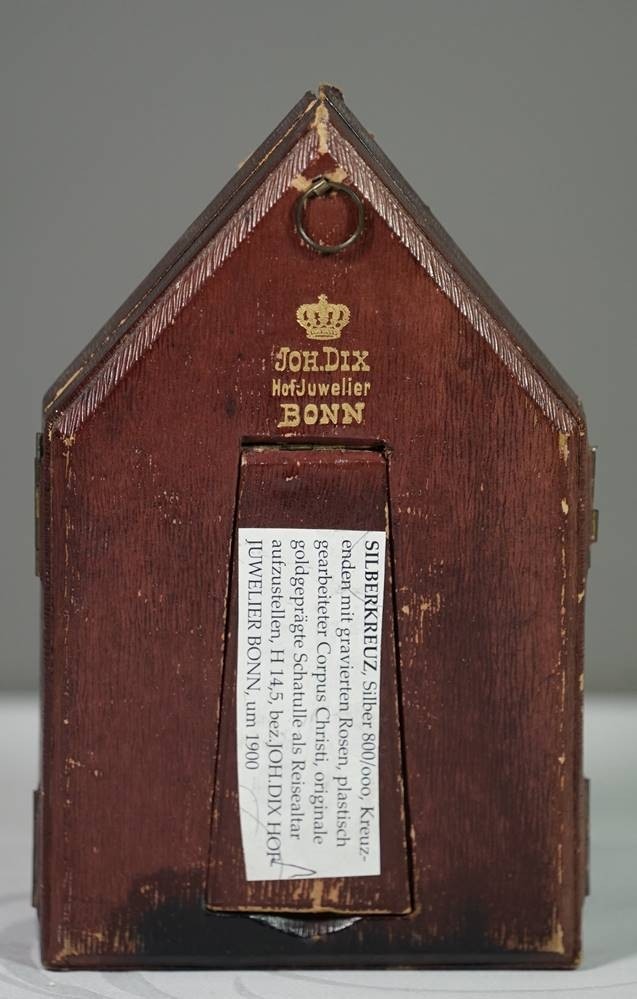 JOH.DIX
Hof-Juwelier
BONN
SILBERKREUZ, Silber 800/ooo, Kreuz-
enden mit gravierten Rosen, plastisch
gearbeiteter Corpus Christi, originale
goldgeprägte Schatulle als Reisealtar
aufzustellen, H 14,5, bez.JOH.DIX HOF
JUWELIER BONN, um 1900